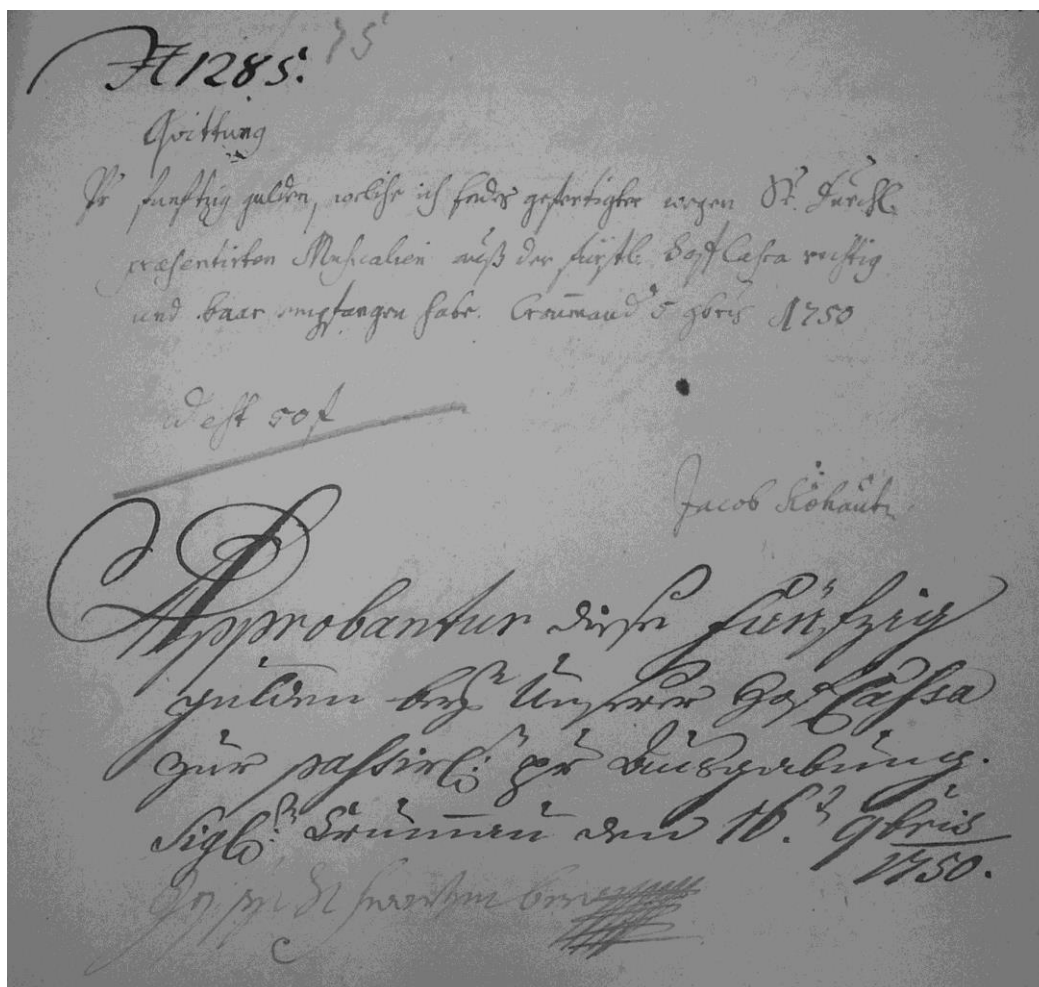 N 1285.
75
Quittung
Pr funftzig gulden, welche ich Endes gefertigter wegen Sr. Durchl.
præsentirten Musicalien auß der fürstl. Hoff Cassa richtig
und baar empfangen habe. Crummau d 5 9bris 1750
id est 50 f
Jacob Kohaut
Approbantur diese Funfzig
gulden bey Unserer Hof Cassa
zur passirl: pr Ausgabung.
Sigl: Crummau den 16.t 9bris
1750.
Schwartzenberg